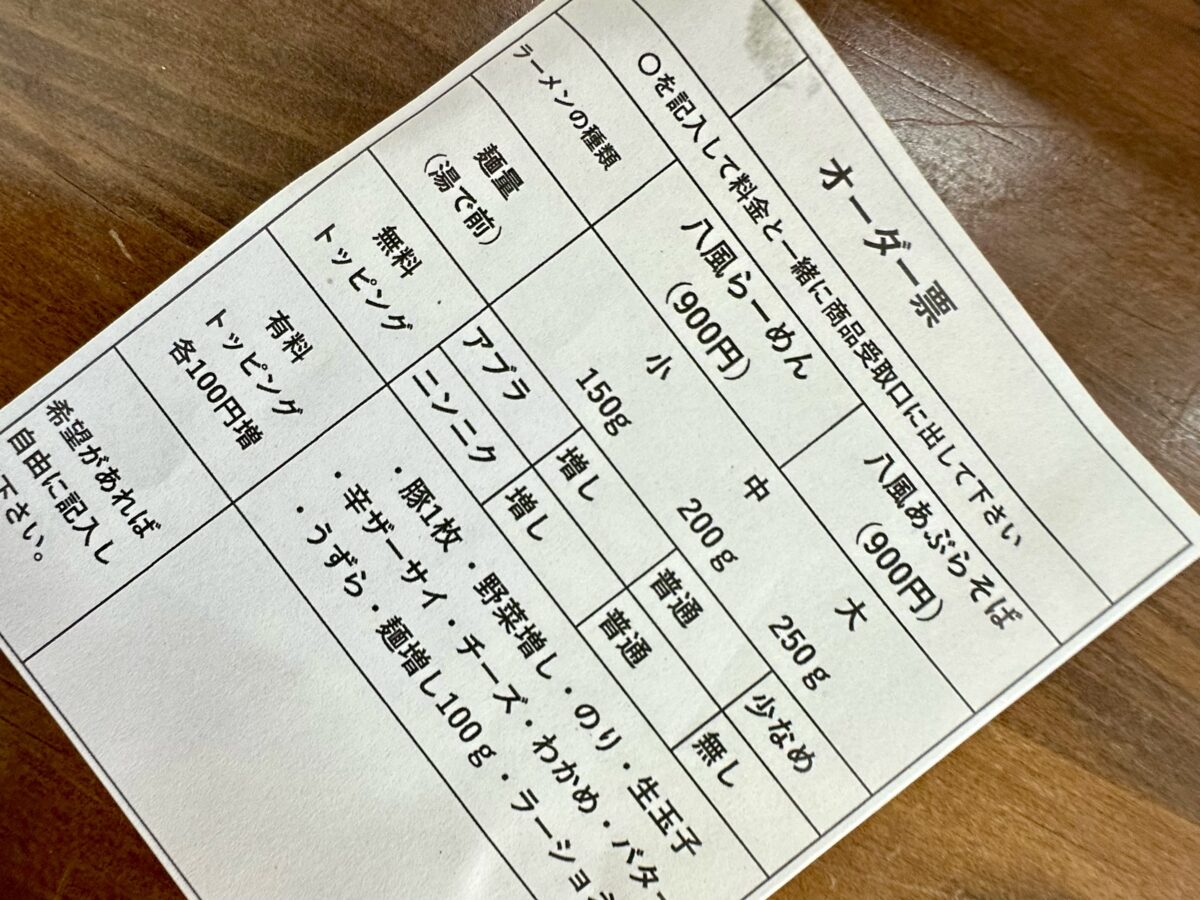 オーダー票
〇を記入して料金と一緒に商品受取口に出して下さい
ラーメンの種類
八風らーめん
(900円)
八風あぶらそば
(900円)
麺量
(湯で前)
小
150g
中
200g
大
250g
無料
トッピング
アブラ
増し
普通
少なめ
ニンニク
増し
普通
無し
有料
トッピング
各100円増
・豚1枚・野菜増し・のり・生玉子
・辛ザーサイ・チーズ・わかめ・バター
・うずら・麺増し100g・ラーショ
希望があれば
自由に記入し
下さい。